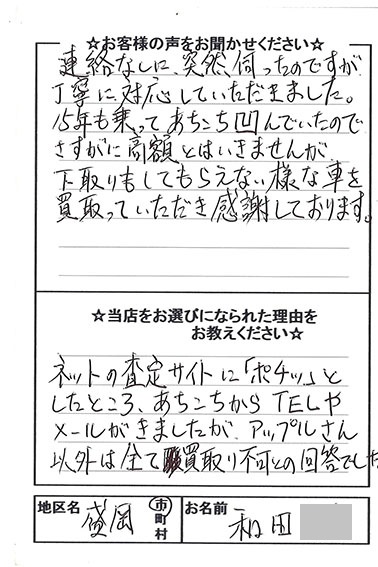 ☆お客様の声をお聞かせください☆
連絡なしに、突然伺ったのですが
丁寧に対応していただきました。
15年も乗ってあちこち凹んでいたので
さすがに高額とはいきませんが
下取りもしてもらえない様な車を
買取っていただき感謝しております。
☆当店をお選びになられた理由を
お教えください☆
ネットの査定サイトに「ポチッ」と
したところ、あちこちからTELや
メールがきましたが、アップルさん
以外は全て買取り不可との回答でした
地区名 盛岡 市町村 お名前 和田